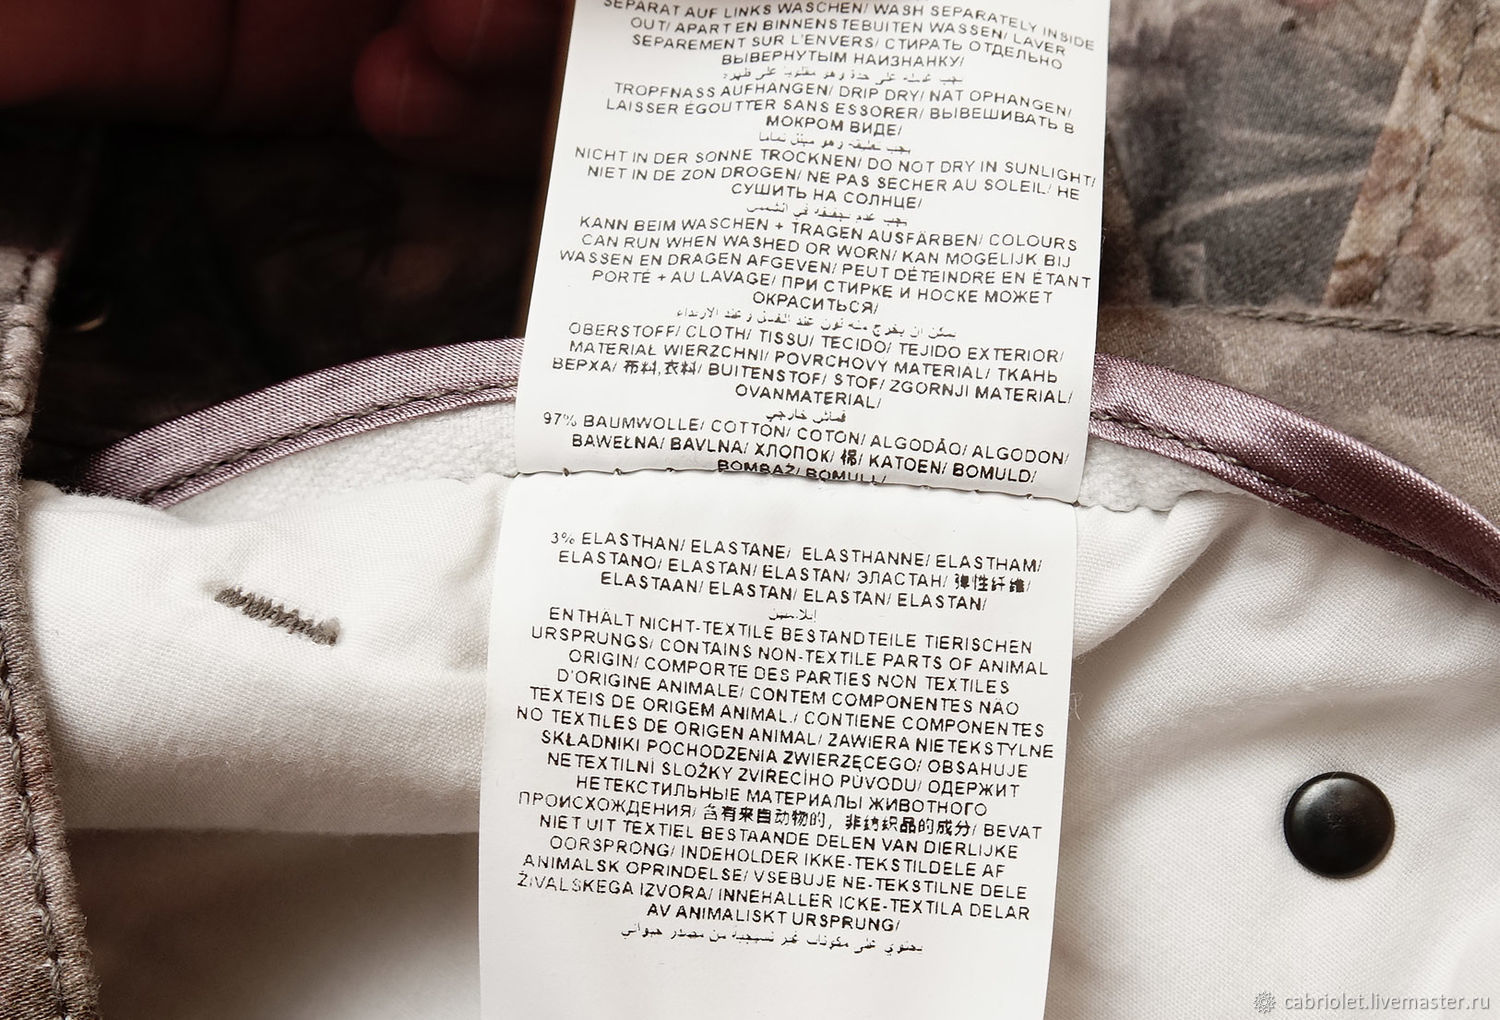 SEPARAT AUF LINKS WASCHEN/ WASH SEPARATELY INSIDE
OUT/ APART EN BINNENSTEBUITEN WASSEN/ LAVER
SEPAREMENT SUR L'ENVERS/ СТИРАТЬ ОТДЕЛЬНО
ВЫВЕРНУТЫМ НАИЗНАНКУ/
يجب غسله على حدة وهو مقلوبا على ظهره
TROPFNASS AUFHANGEN/ DRIP DRY/ NAT OPHANGEN/
LAISSER ÉGOUTTER SANS ESSORER/ ВЫВЕШИВАТЬ В
МОКРОМ ВИДЕ/
يجب تعليقه وهو مبتل تماما
NICHT IN DER SONNE TROCKNEN/ DO NOT DRY IN SUNLIGHT/
NIET IN DE ZON DROGEN/ NE PAS SECHER AU SOLEIL/ НЕ
СУШИТЬ НА СОЛНЦЕ/
يجب عدم تجفيفه في الشمس
KANN BEIM WASCHEN + TRAGEN AUSFÄRBEN/ COLOURS
CAN RUN WHEN WASHED OR WORN/ KAN MOGELIJK BIJ
WASSEN EN DRAGEN AFGEVEN/ PEUT DÉTEINDRE EN ÉTANT
PORTÉ + AU LAVAGE/ ПРИ СТИРКЕ И НОСКЕ МОЖЕТ
ОКРАСИТЬСЯ/
يمكن ان يخرج منه لون عند الغسل وعند الارتداء
OBERSTOFF/ CLOTH/ TISSU/ TECIDO/ TEJIDO EXTERIOR/
MATERIAŁ WIERZCHNI/ POVRCHOVÝ MATERIAL/ ТКАНЬ
ВЕРХА/ 布料,衣料/ BUITENSTOF/ STOF/ ZGORNJI MATERIAL/
OVANMATERIAL/
قماش خارجي
97% BAUMWOLLE/ COTTON/ COTON/ ALGODÃO/ ALGODON/
BAWEŁNA/ BAVLNA/ ХЛОПОК/ 棉/ KATOEN/ BOMULD/
BOMBAŽ/ BOMULL/
3% ELASTHAN/ ELASTANE/ ELASTHANNE/ ELASTHAM/
ELASTANO/ ELASTAN/ ELASTAN/ ЭЛАСТАН/ 弹性纤维/
ELASTAAN/ ELASTAN/ ELASTAN/ ELASTAN/
ENTHÄLT NICHT-TEXTILE BESTANDTEILE TIERISCHEN
URSPRUNGS/ CONTAINS NON-TEXTILE PARTS OF ANIMAL
ORIGIN/ COMPORTE DES PARTIES NON TEXTILES
D'ORIGINE ANIMALE/ CONTEM COMPONENTES NÃO
TEXTEIS DE ORIGEM ANIMAL./ CONTIENE COMPONENTES
NO TEXTILES DE ORIGEN ANIMAL/ ZAWIERA NIETEKSTYLNE
SKŁADNIKI POCHODZENIA ZWIERZĘCEGO/ OBSAHUJE
NETEXTILNÍ SLOŽKY ZVÍŘECÍHO PŮVODU/ ОДЕРЖИТ
НЕТЕКСТИЛЬНЫЕ МАТЕРИАЛЫ ЖИВОТНОГО
ПРОИСХОЖДЕНИЯ/ 含有来自动物的, 非纺织品的成分/ BEVAT
NIET UIT TEXTIEL BESTAANDE DELEN VAN DIERLIJKE
OORSPRONG/ INDEHOLDER IKKE-TEKSTILDELE AF
ANIMALSK OPRINDELSE/ VSEBUJE NE-TEKSTILNE DELE
ŽIVALSKEGA IZVORA/ INNEHALLER ICKE-TEXTILA DELAR
AV ANIMALISKT URSPRUNG/
يحتوي على مكونات غير نسيجية من مصدر حيواني
cabriolet.livemaster.ru